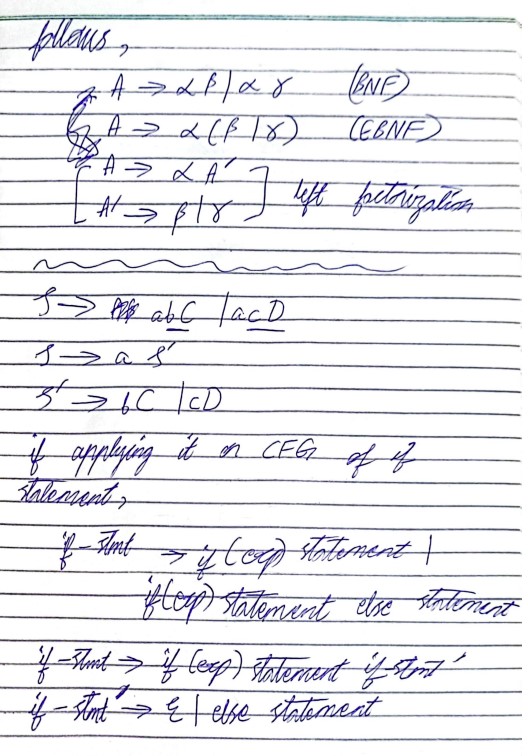 follows,
A → αβ | αγ (BNF)
A → α(β | γ) (EBNF)
A → αA'
A' → β | γ left factorization
S → abC | acD
S → aS'
S' → bC | cD
if applying it on CFG of if
statement,
if-stmt → if (exp) statement |
if (exp) statement else statement
if-stmt → if (exp) statement if stmt'
if-stmt' → ε | else statement